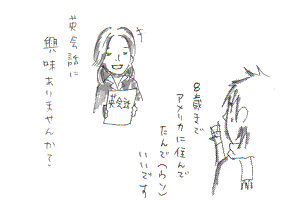 英会話に
興味ありませんか？
英会話
8歳まで
アメリカに住んで
たんで(ウソ)
いいです